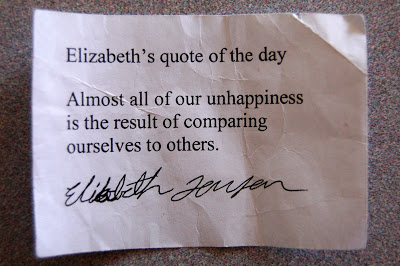 Elizabeth’s quote of the day
Almost all of our unhappiness
is the result of comparing
ourselves to others.
Elizabeth